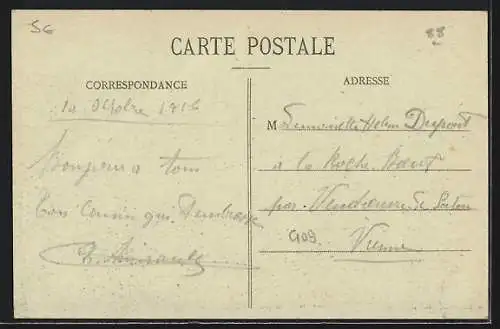 56
88
CARTE POSTALE
CORRESPONDANCE
ADRESSE
10 octobre 1916
Bonjour a tous
Ton Cousin qui t'embrasse
Mademoiselle Helene Dupont
à la Roche Boeuf
par Vendeuvre de Poitou
G09
Vienne